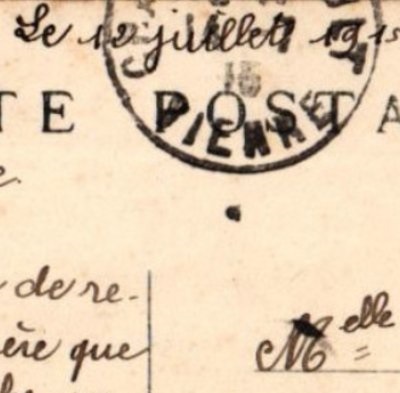 Le 12 juillet 1915
TE POSTA
15
VIENNE
de re-
ère que
Melle